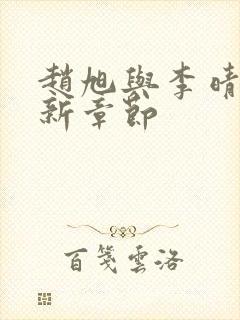 趙旭與李晴
新章節
百箋雲洛